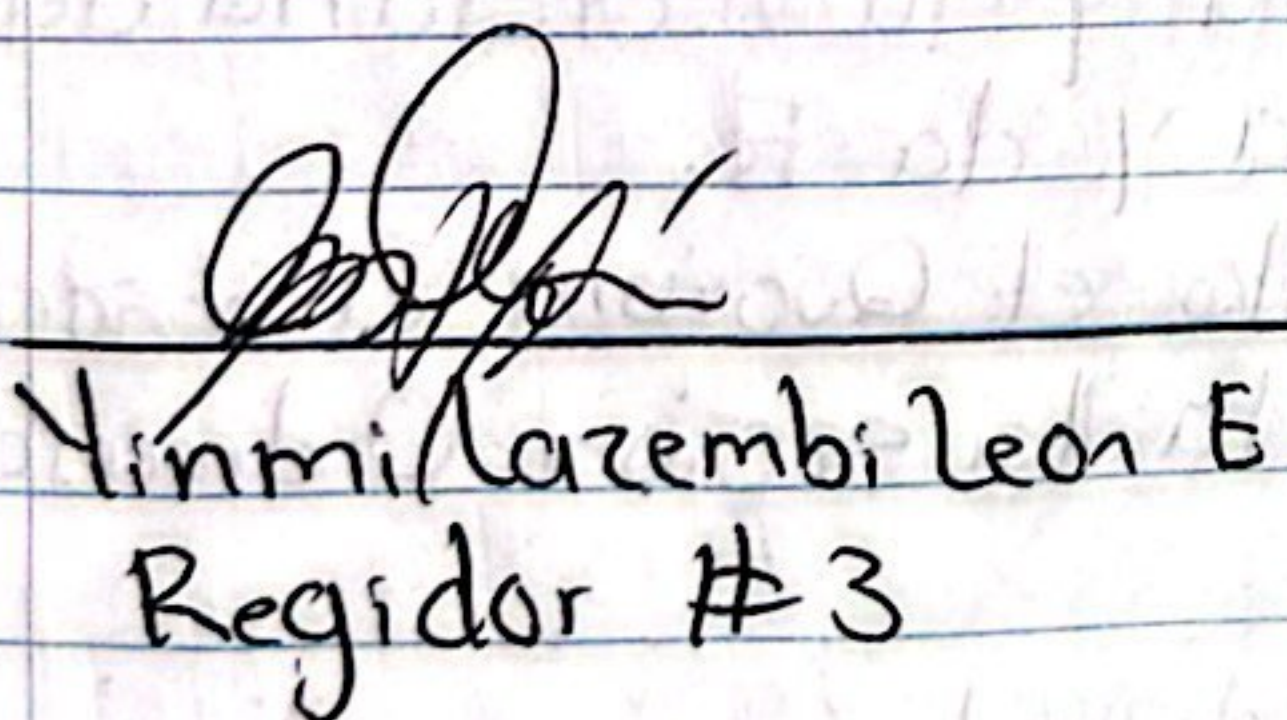 Yinmi Lazembi Leon E
Regidor #3